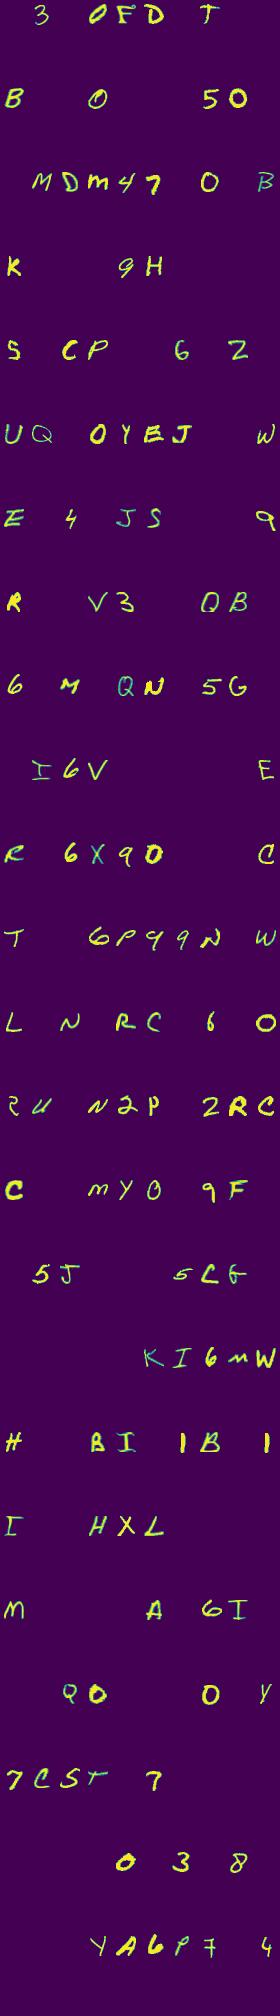 3 0FD T
B 0 50
MDM47 0 B
K 9H
S CP 6 Z
UQ 0YEJ W
E 4 JS 9
R V3 QB
6 M QN 5G
I6V E
R 6X90 C
T 6P999N W
L N RC 6 0
RU N2P 2RC
C MYO 9F
5J 5LG
KI6MW
H BI 1B 1
I HXL
M A 6I
Q0 0 Y
7CST 7
0 3 8
YA6P7 4